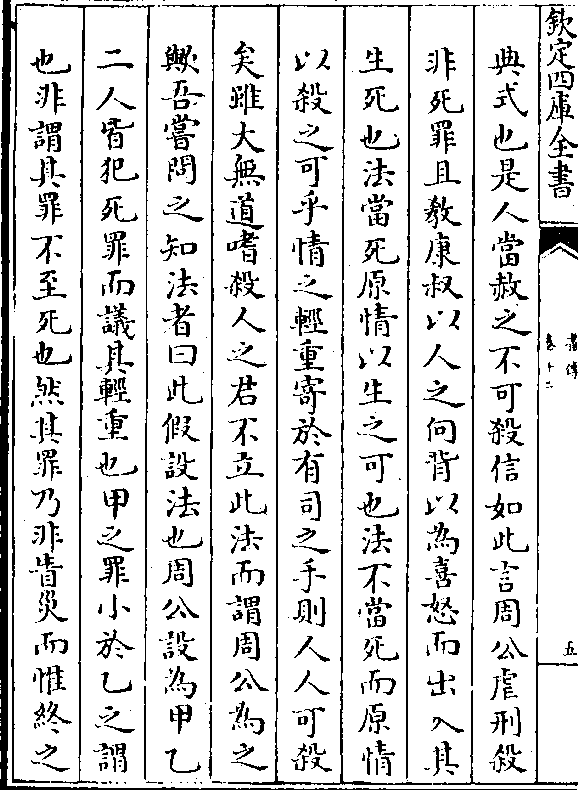 欽定四庫全書
書傳
卷十二
五
典式也是人當赦之不可殺信如此言周公虐刑殺
非死罪且教康叔以人之向背以為喜怒而出入其
生死也法當死原情以生之可也法不當死而原情
以殺之可乎情之輕重寄於有司之手則人人可殺
矣雖大無道嗜殺人之君不立此法而謂周公為之
歟吾嘗問之知法者曰此假設法也周公設為甲乙
二人皆犯死罪而議其輕重也甲之罪小於乙之謂
也非謂其罪不至死也然其罪乃非眚災而惟終之